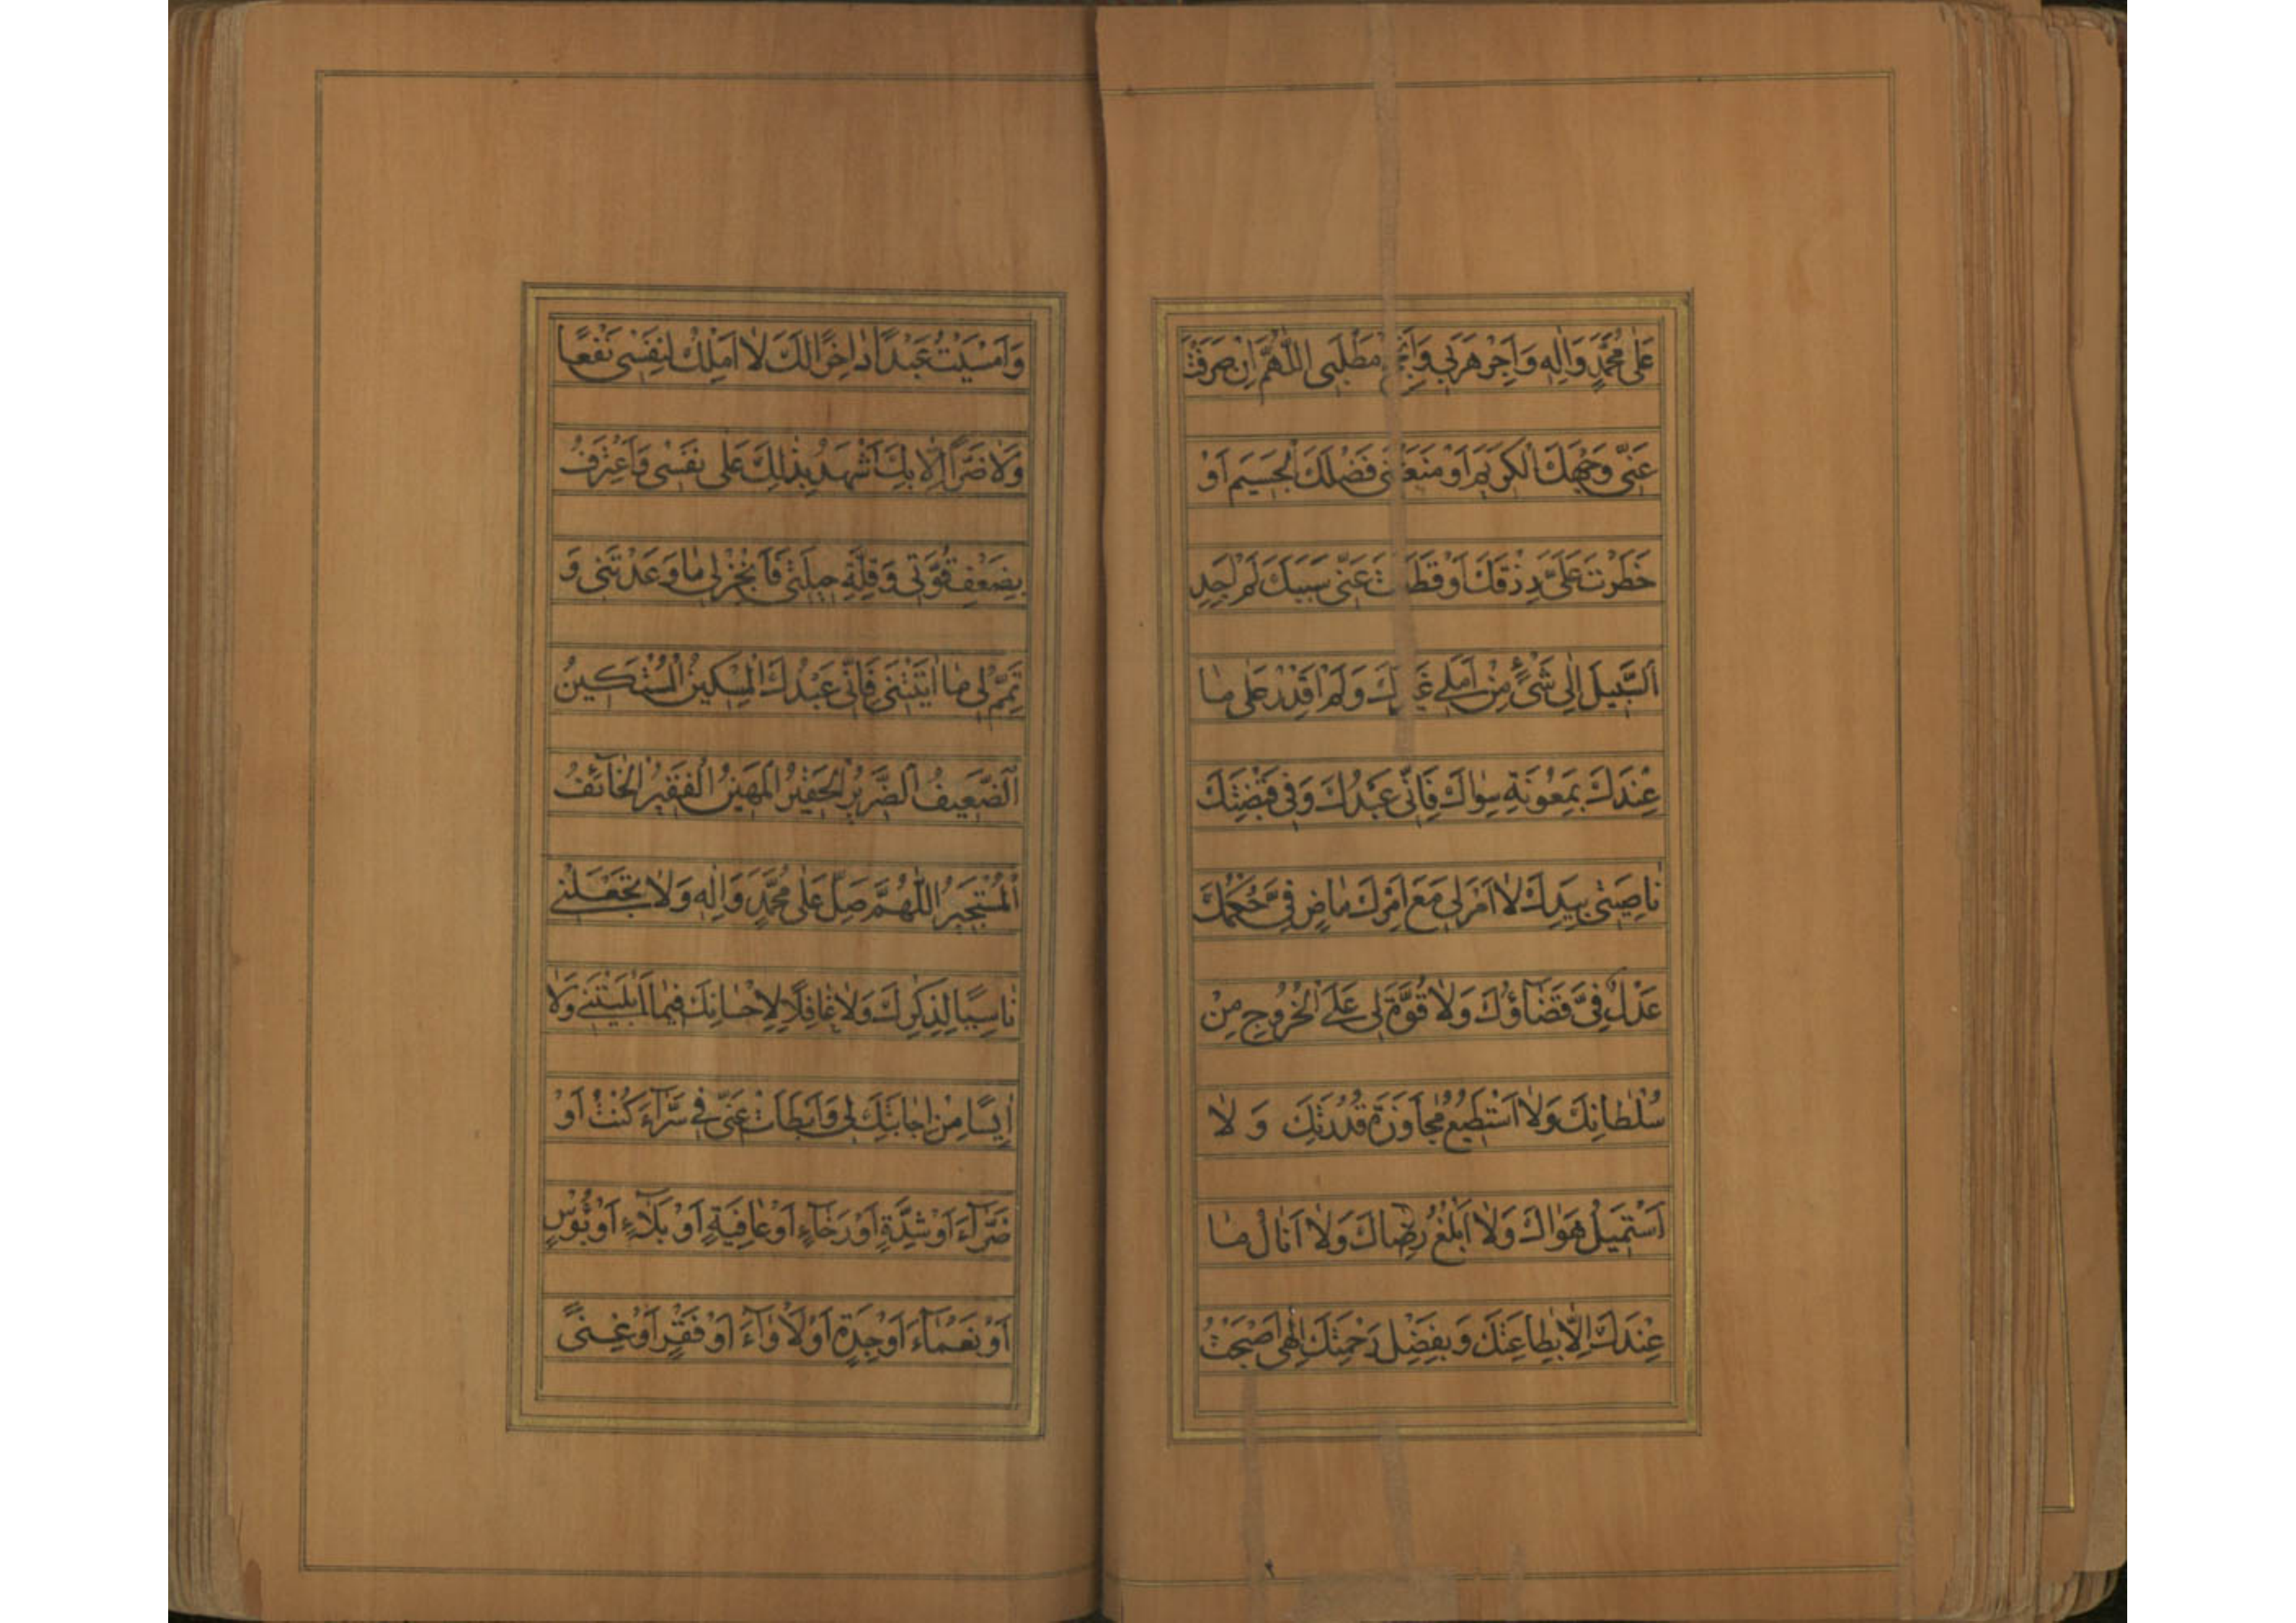 عَلٰى مُحَمَّدٍ وَاٰلِهِ وَاَجِرْ هَرَبِى مَطْلَبِى اَللّٰهُمَّ اِنْ صَرَفْتَ
عَنّى وَجْهَكَ الْكَريمَ اَوْ مَنَعْتَنى فَضْلَكَ الْجَسيمَ اَوْ
خَطَرْتَ عَلَىَّ رِزْقَكَ اَوْ قَطَعْتَ عَنّى سَبَبَكَ لَمْ اَجِدِ
السَّبيلَ اِلٰى شَىْءٍ مِنْ اَمَلى غَيْرَكَ وَلَمْ اَقْدِرْ عَلٰى مٰا
عِنْدَكَ بِمَعُونَةِ سِوٰاكَ فَاِنّى عَبْدُكَ وَفى قَبْضَتِكَ
نٰاصِيَتى بِيَدِكَ لٰا اَمْرَ لى مَعَ اَمْرِكَ مٰاضٍ فِىَّ حُكْمُكَ
عَدْلٌ فِىَّ قَضٰاؤُكَ وَلٰا قُوَّةَ لى عَلَى الْخُرُوجِ مِنْ
سُلْطٰانِكَ وَلٰا اَسْتَطيعُ مُجٰاوَزَةَ قُدْرَتِكَ وَ لٰا
اَسْتَميلُ هَوٰاكَ وَلٰا اَبْلُغُ رِضٰاكَ وَلٰا اَنٰالُ مٰا
عِنْدَكَ اِلّٰا بِطٰاعَتِكَ وَبِفَضْلِ رَحْمَتِكَ اِلٰهى اَصْبَحْتُ
وَاَمْسَيْتُ عَبْدًا دٰاخِرًا لَكَ لٰا اَمْلِكُ لِنَفْسى نَفْعًا
وَلٰا ضَرًّا اِلّٰا بِكَ اَشْهَدُ بِذٰلِكَ عَلٰى نَفْسى وَاَعْتَرِفُ
بِضَعْفِ قُوَّتى وَقِلَّةِ حيلَتى فَاَنْجِزْ لى مٰا وَعَدْتَنى وَ
تَمِّمْ لى مٰا اٰتَيْتَنى فَاِنّى عَبْدُكَ الْمِسْكينُ الْمُسْتَكينُ
اَلضَّعيفُ الضَّريرُ الْحَقيرُ الْمَهينُ الْفَقيرُ الْخٰائِفُ
الْمُسْتَجيرُ اَللّٰهُمَّ صَلِّ عَلٰى مُحَمَّدٍ وَاٰلِهِ وَلٰا تَجْعَلْنى
نٰاسِيًا لِذِكْرِكَ وَلٰا غٰافِلًا لِاِحْسٰانِكَ فيمٰا اَبْلَيْتَنى وَلٰا
اٰيِسًا مِنْ اِجٰابَتِكَ لى وَاَبْطَاَتْ عَنّى فى سَرّٰاءَ كُنْتُ اَوْ
ضَرّٰاءَ اَوْ شِدَّةٍ اَوْ رَخٰاءٍ اَوْ عٰافِيَةٍ اَوْ بَلٰاءٍ اَوْ بُؤْسٍ
اَوْ نَعْمٰاءَ اَوْ جِدَةٍ اَوْ لَاْوٰاءَ اَوْ فَقْرٍ اَوْ غِنًى